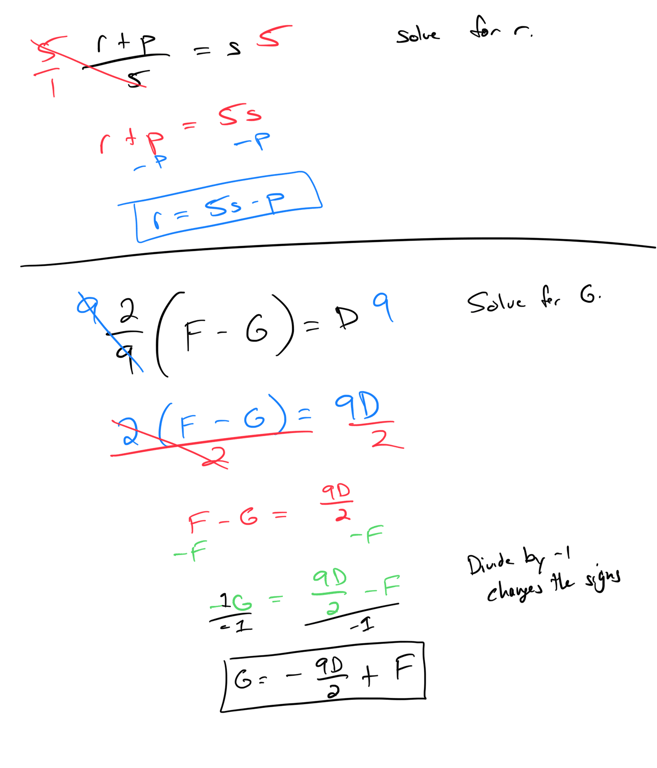 5/1 (r+p)/5 = s 5 Solve for r.
r+p = 5s
-p -p
r = 5s-p
9 2/9 (F-G) = D 9 Solve for G.
2(F-G)/2 = 9D/2
F-G = 9D/2
-F -F
-1G/-1 = (9D/2 -F)/-1 Divide by -1
changes the signs
G = - 9D/2 + F